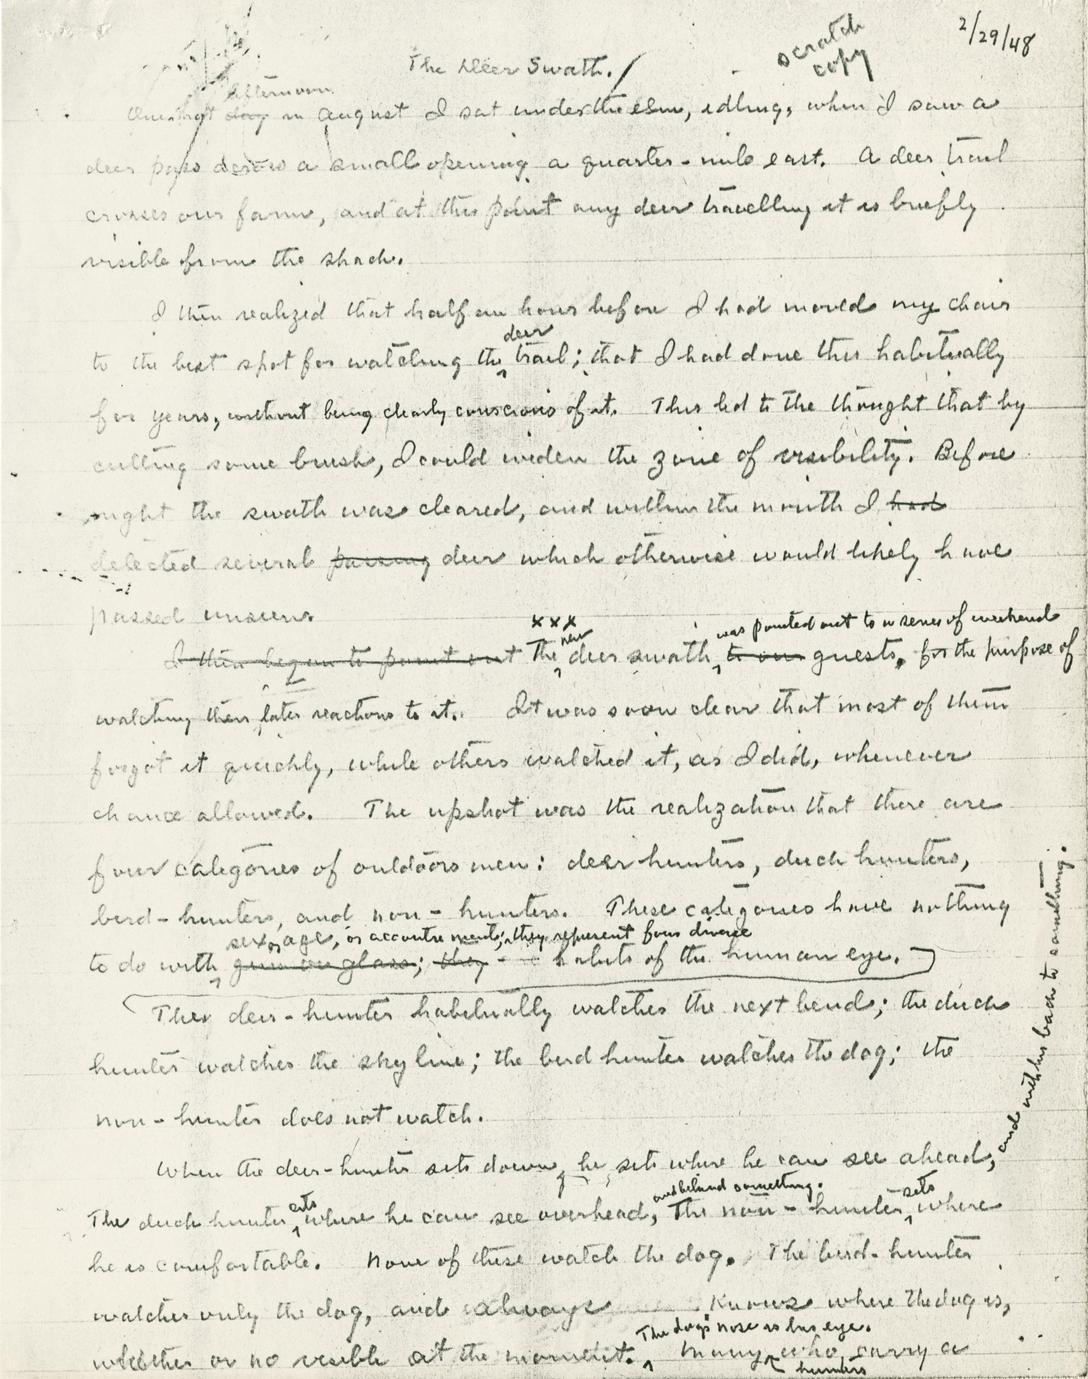 2/29/48
scratch
copy
The Deer Swath.
afternoon
One hot day in august I sat under the elm, idling, when I saw a
deer pass across a small opening a quarter-mile east. A deer trail
crosses our farm, and at this point any deer travelling it is briefly
visible from the shack.
I then realized that half an hour before I had moved my chair
deer
to the best spot for watching the trail; that I had done this habitually
for years, without being clearly conscious of it. This led to the thought that by
cutting some brush, I could widen the zone of visibility. Before
night the swath was cleared, and within the month I had
detected several passing deer which otherwise would likely have
passed unseen.
xxx
new was pointed out to a series of weekend
I then began to point out The deer swath to our guests, for the purpose of
watching their later reactions to it. It was soon clear that most of them
forgot it quickly, while others watched it, as I did, whenever
chance allowed. The upshot was the realization that there are
four categories of outdoorsmen: deer hunters, duck hunters,
bird-hunters, and non-hunters. These categories have nothing
sex or age, or accoutrement; they represent four diverse
to do with gun or glass; they habits of the human eye.
The deer-hunter habitually watches the next bend; the duck
hunter watches the skyline; the bird hunter watches the dog; the
non-hunter does not watch.
When the deer-hunter sits down, he sits where he can see ahead,
and with his back to something.
and behind something. sits
sits
The duck hunter where he can see overhead, The non-hunter where
he is comfortable. None of these watch the dog. The bird-hunter
watches only the dog, and always knows where the dog is,
The dog's nose is his eye.
whether or no visible at the moment. Many who carry a
hunters